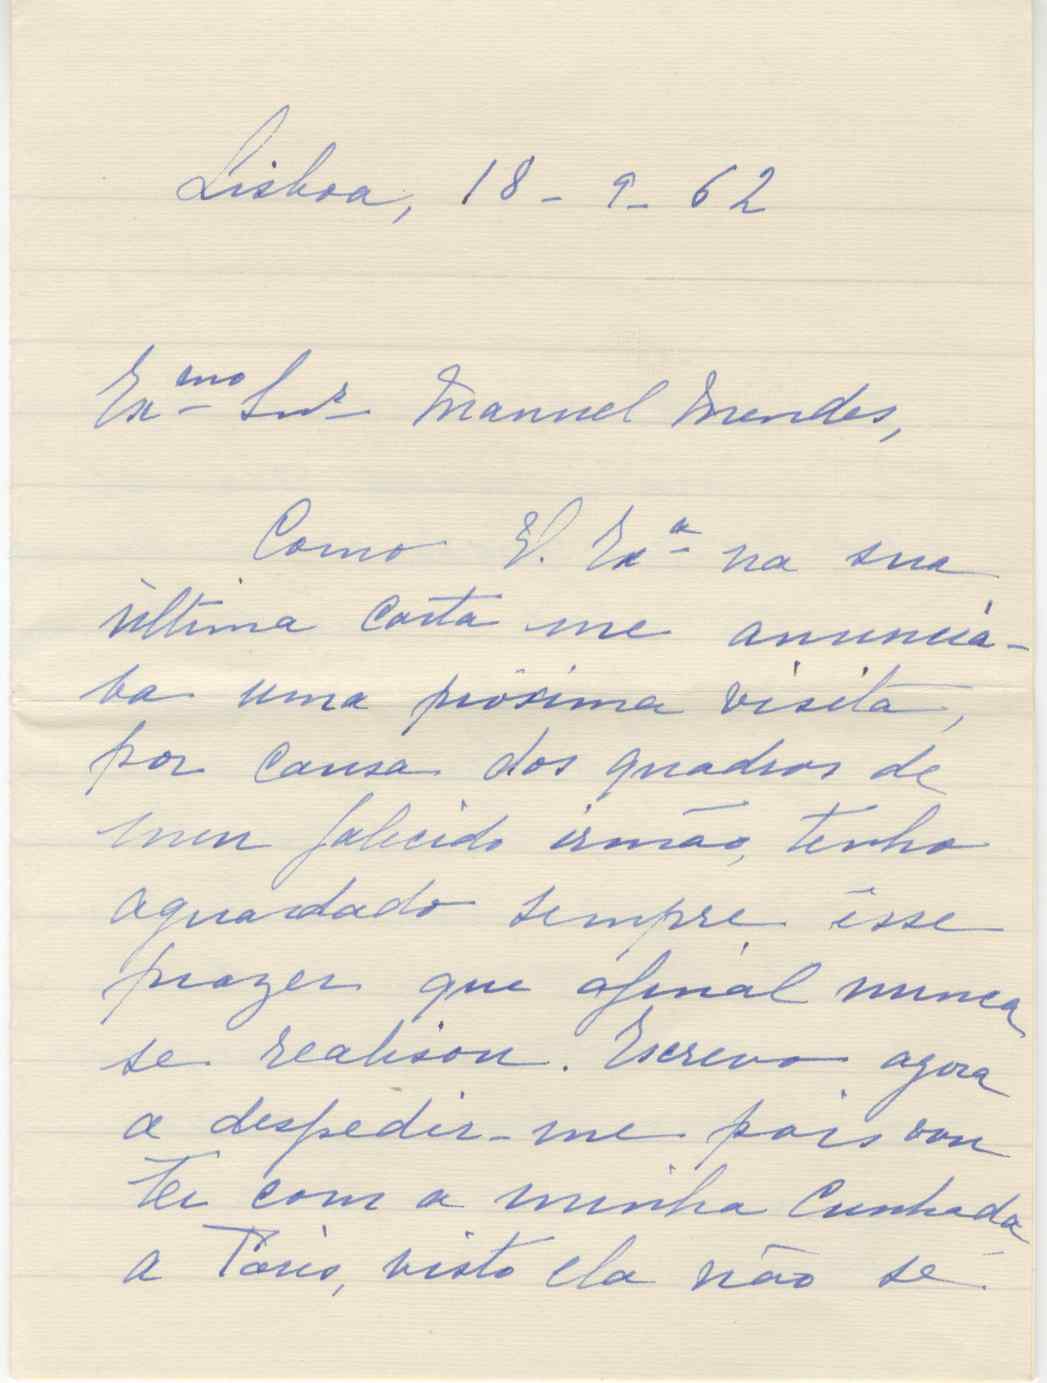 Lisboa, 18-9-62
Exmo Snr Manuel Mendes,
Como V. Exa na sua
última carta me anuncia-
va uma próxima visita,
por causa dos quadros de
meu falecido irmão, tenho
aguardado sempre êsse
prazer que afinal nunca
se realisou. Escrevo agora
a despedir-me pois vou
ter com a minha Cunhada
a Paris, visto ela não se